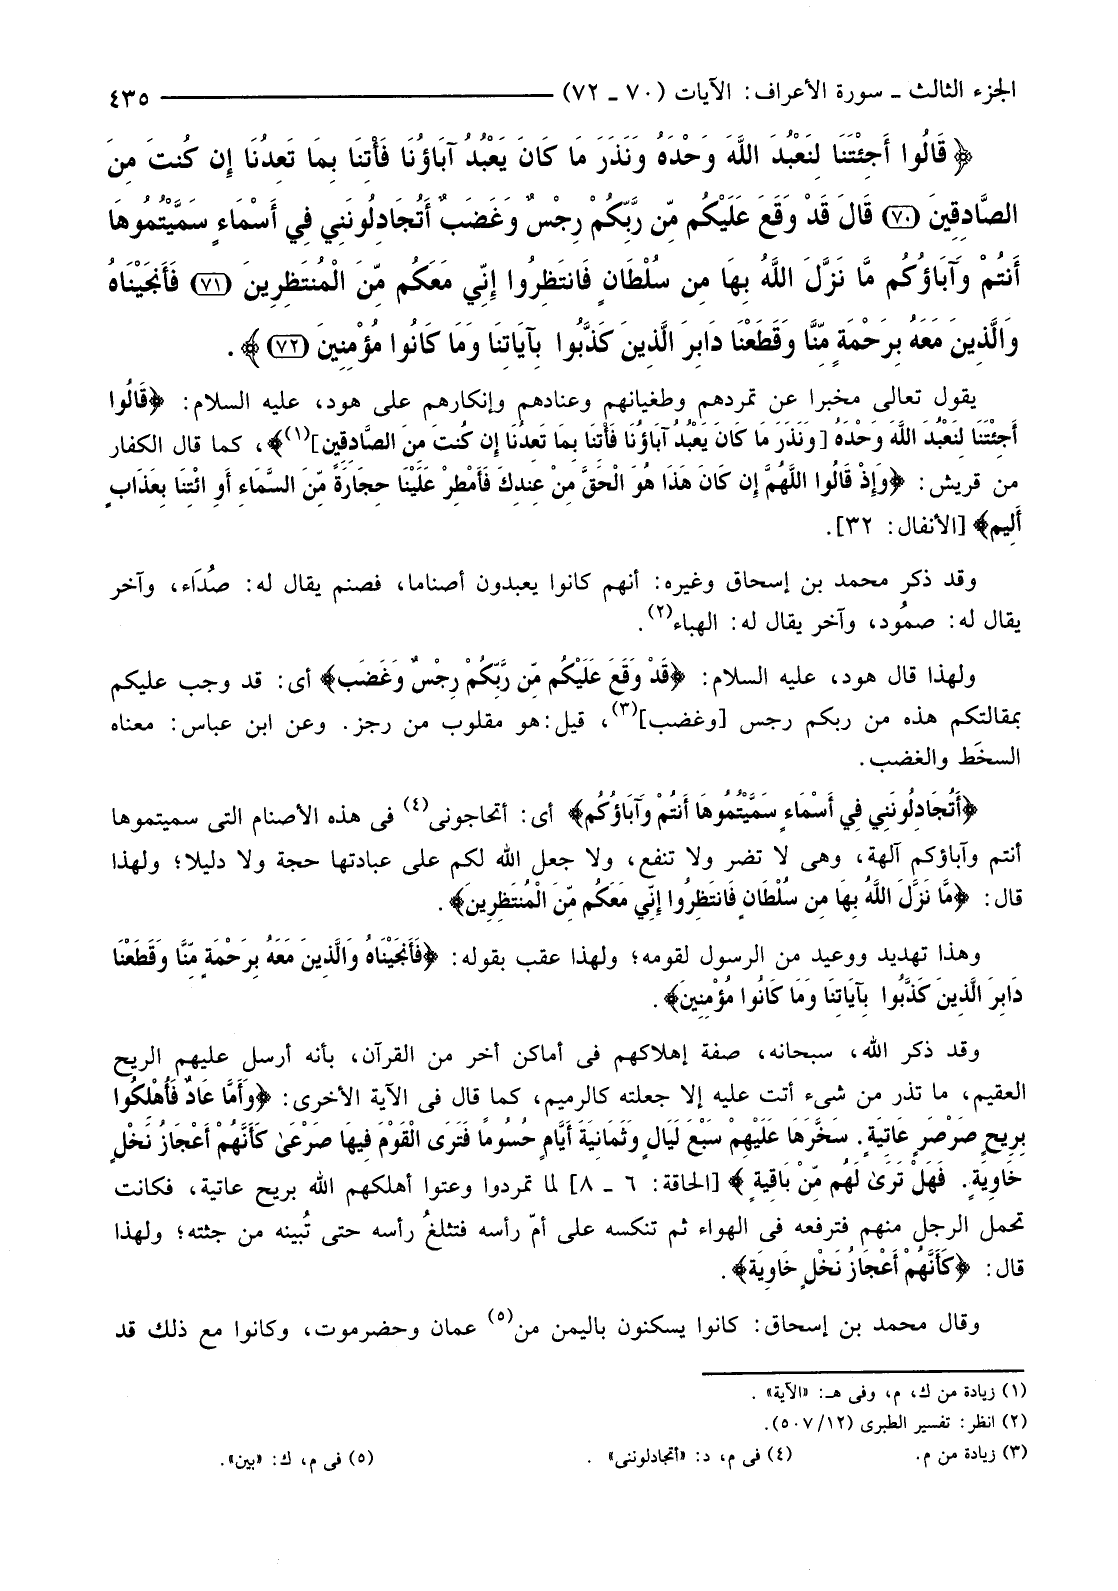 الجزء الثالث ـ سورة الأعراف: الآيات (٧٠ ـ ٧٢) ٤٣٥
﴿قَالُوا أَجِئْتَنَا لِنَعْبُدَ اللَّهَ وَحْدَهُ وَنَذَرَ مَا كَانَ يَعْبُدُ آبَاؤُنَا فَأْتِنَا بِمَا تَعِدُنَا إِن كُنتَ مِنَ
الصَّادِقِينَ (٧٠) قَالَ قَدْ وَقَعَ عَلَيْكُم مِّن رَّبِّكُمْ رِجْسٌ وَغَضَبٌ أَتُجَادِلُونَنِي فِي أَسْمَاءٍ سَمَّيْتُمُوهَا
أَنتُمْ وَآبَاؤُكُم مَّا نَزَّلَ اللَّهُ بِهَا مِن سُلْطَانٍ فَانتَظِرُوا إِنِّي مَعَكُم مِّنَ الْمُنتَظِرِينَ (٧١) فَأَنجَيْنَاهُ
وَالَّذِينَ مَعَهُ بِرَحْمَةٍ مِّنَّا وَقَطَعْنَا دَابِرَ الَّذِينَ كَذَّبُوا بِآيَاتِنَا وَمَا كَانُوا مُؤْمِنِينَ (٧٢)﴾.
يقول تعالى مخبرا عن تمردهم وطغيانهم وعنادهم وإنكارهم على هود، عليه السلام: ﴿قَالُوا
أَجِئْتَنَا لِنَعْبُدَ اللَّهَ وَحْدَهُ [وَنَذَرَ مَا كَانَ يَعْبُدُ آبَاؤُنَا فَأْتِنَا بِمَا تَعِدُنَا إِن كُنتَ مِنَ الصَّادِقِينَ](١)﴾، كما قال الكفار
من قريش: ﴿وَإِذْ قَالُوا اللَّهُمَّ إِن كَانَ هَذَا هُوَ الْحَقَّ مِنْ عِندِكَ فَأَمْطِرْ عَلَيْنَا حِجَارَةً مِّنَ السَّمَاءِ أَوِ ائْتِنَا بِعَذَابٍ
أَلِيمٍ﴾ [الأنفال: ٣٢].
وقد ذكر محمد بن إسحاق وغيره: أنهم كانوا يعبدون أصناما، فصنم يقال له: صُدَاء، وآخر
يقال له: صمُود، وآخر يقال له: الهباء(٢).
ولهذا قال هود، عليه السلام: ﴿قَدْ وَقَعَ عَلَيْكُم مِّن رَّبِّكُمْ رِجْسٌ وَغَضَب﴾ أى: قد وجب عليكم
بمقالتكم هذه من ربكم رجس [وغضب](٣)، قيل:هو مقلوب من رجز. وعن ابن عباس: معناه
السخَط والغضب.
﴿أَتُجَادِلُونَنِي فِي أَسْمَاءٍ سَمَّيْتُمُوهَا أَنتُمْ وَآبَاؤُكُم﴾ أى: أتحاجونى(٤) فى هذه الأصنام التى سميتموها
أنتم وآباؤكم آلهة، وهى لا تضر ولا تنفع، ولا جعل الله لكم على عبادتها حجة ولا دليلا؛ ولهذا
قال: ﴿مَّا نَزَّلَ اللَّهُ بِهَا مِن سُلْطَانٍ فَانتَظِرُوا إِنِّي مَعَكُم مِّنَ الْمُنتَظِرِينَ﴾.
وهذا تهديد ووعيد من الرسول لقومه؛ ولهذا عقب بقوله: ﴿فَأَنجَيْنَاهُ وَالَّذِينَ مَعَهُ بِرَحْمَةٍ مِّنَّا وَقَطَعْنَا
دَابِرَ الَّذِينَ كَذَّبُوا بِآيَاتِنَا وَمَا كَانُوا مُؤْمِنِينَ﴾.
وقد ذكر الله، سبحانه، صفة إهلاكهم فى أماكن أخر من القرآن، بأنه أرسل عليهم الريح
العقيم، ما تذر من شىء أتت عليه إلا جعلته كالرميم، كما قال فى الآية الأخرى: ﴿وَأَمَّا عَادٌ فَأُهْلِكُوا
بِرِيحٍ صَرْصَرٍ عَاتِيَةٍ. سَخَّرَهَا عَلَيْهِمْ سَبْعَ لَيَالٍ وَثَمَانِيَةَ أَيَّامٍ حُسُومًا فَتَرَى الْقَوْمَ فِيهَا صَرْعَىٰ كَأَنَّهُمْ أَعْجَازُ نَخْلٍ
خَاوِيَةٍ. فَهَلْ تَرَىٰ لَهُم مِّنْ بَاقِيَةٍ﴾ [الحاقة: ٦ ـ ٨] لما تمردوا وعتوا أهلكهم الله بريح عاتية، فكانت
تحمل الرجل منهم فترفعه فى الهواء ثم تنكسه على أمّ رأسه فتثلغُ رأسه حتى تُبينه من جثته؛ ولهذا
قال: ﴿كَأَنَّهُمْ أَعْجَازُ نَخْلٍ خَاوِيَة﴾.
وقال محمد بن إسحاق: كانوا يسكنون باليمن من(٥) عمان وحضرموت، وكانوا مع ذلك قد
(١) زيادة من ك، م، وفى هـ: «الآية».
(٢) انظر: تفسير الطبرى (٥٠٧/١٢).
(٣) زيادة من م. (٤) فى م، د: «أتجادلوننى». (٥) فى م، ك: «بين».